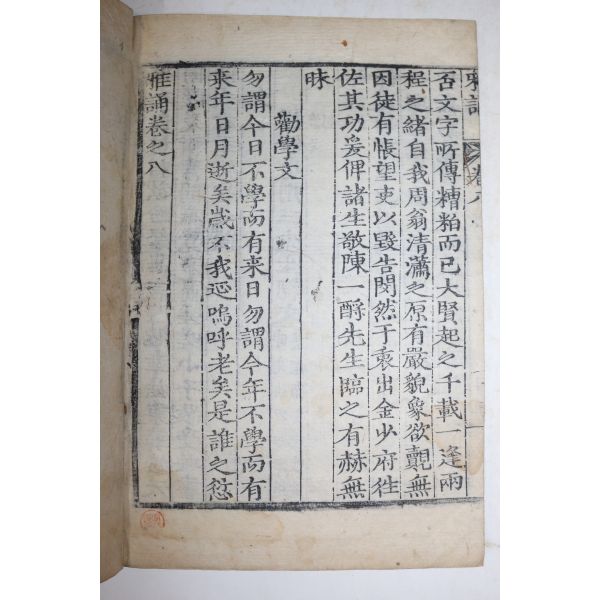 雅誦 卷八
否文字所傳糟粕而已大賢起之千載一逢兩
程之緖自我周翁清瀟之原有嚴貌象欲覿無
因徒有悵望吏以毁告閔然于衷出金少府徃
佐其功爰俾諸生敬陳一酹先生臨之有赫無
昧
勸學文
勿謂今日不學而有来日勿謂今年不學而有
来年日月逝矣歲不我延嗚呼老矣是誰之愆
雅誦卷之八